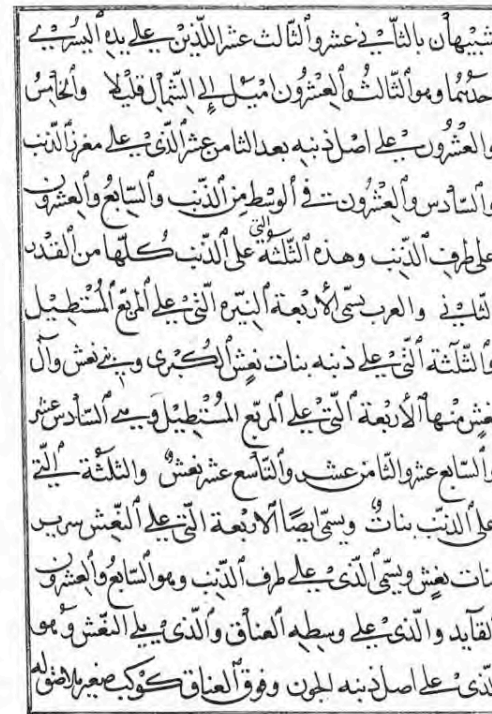 شبيهان بالثاني عشر والثالث عشر اللذين على يده اليسرى
احدهما وهو الثالث والعشرون اميل إلى الشمال قليلا والخامس
والعشرون على اصل ذنبه بعد الثامن عشر الذي على مغرز الذنب
والسادس والعشرون في الوسط من الذنب والسابع والعشرون
على طرف الذنب وهذه الثلثة التي على الذنب كلها من القدر
الثاني والعرب تسمى الأربعة النيرة التي على المربع المستطيل
والثلثة التي على ذنبه بنات نعش الكبرى وبني نعش وآل
نعش منها الأربعة التي على المربع المستطيل وهي السادس عشر
والسابع عشر والثامن عشر والتاسع عشر نعش والثلثة التي
على الذنب بنات ويسمى ايضا الاربعة التي على النعش سرير
بنات نعش ويسمى الذي على طرف الذنب وهو السابع والعشرون
القايد والذي على وسطه العناق والذي يلي النعش وهو
الذي على اصل ذنبه الجون وفوق العناق كوكب صغير ملاصق له